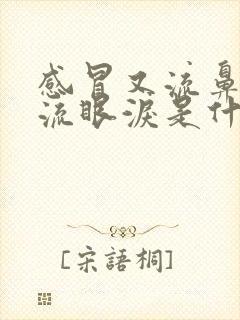 感冒又流鼻
流眼淚是什
[宋語桐]